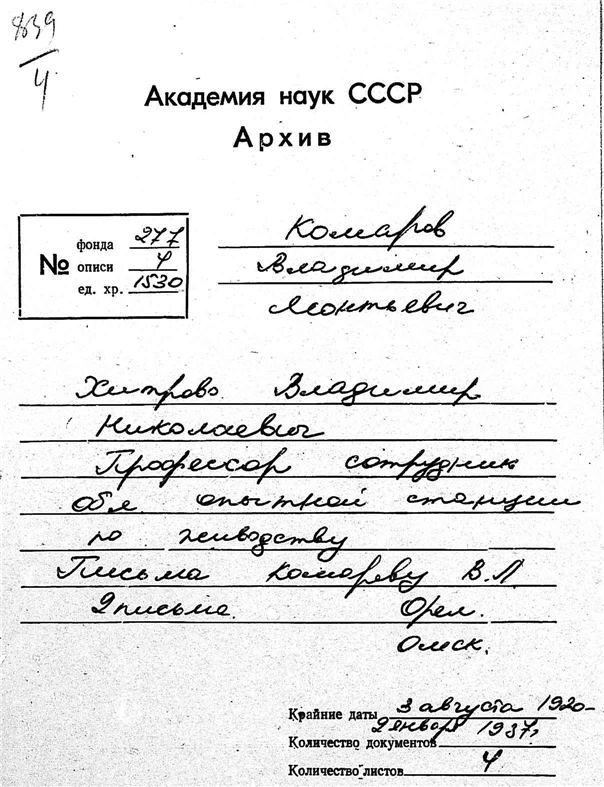 839
4
Академия наук СССР
Архив
№
фонда 277
описи 4
ед. хр. 1530
Комаров
Владимир
Леонтьевич
Хитрово Владимир
Николаевич
Профессор сотрудник
обл. опытной станции
по живодству
Письма Комарову В.Л.
2 письма. Орел.
Омск.
Крайние даты 3 августа 1920-
2 января 1937г.
Количество документов
Количество листов 4